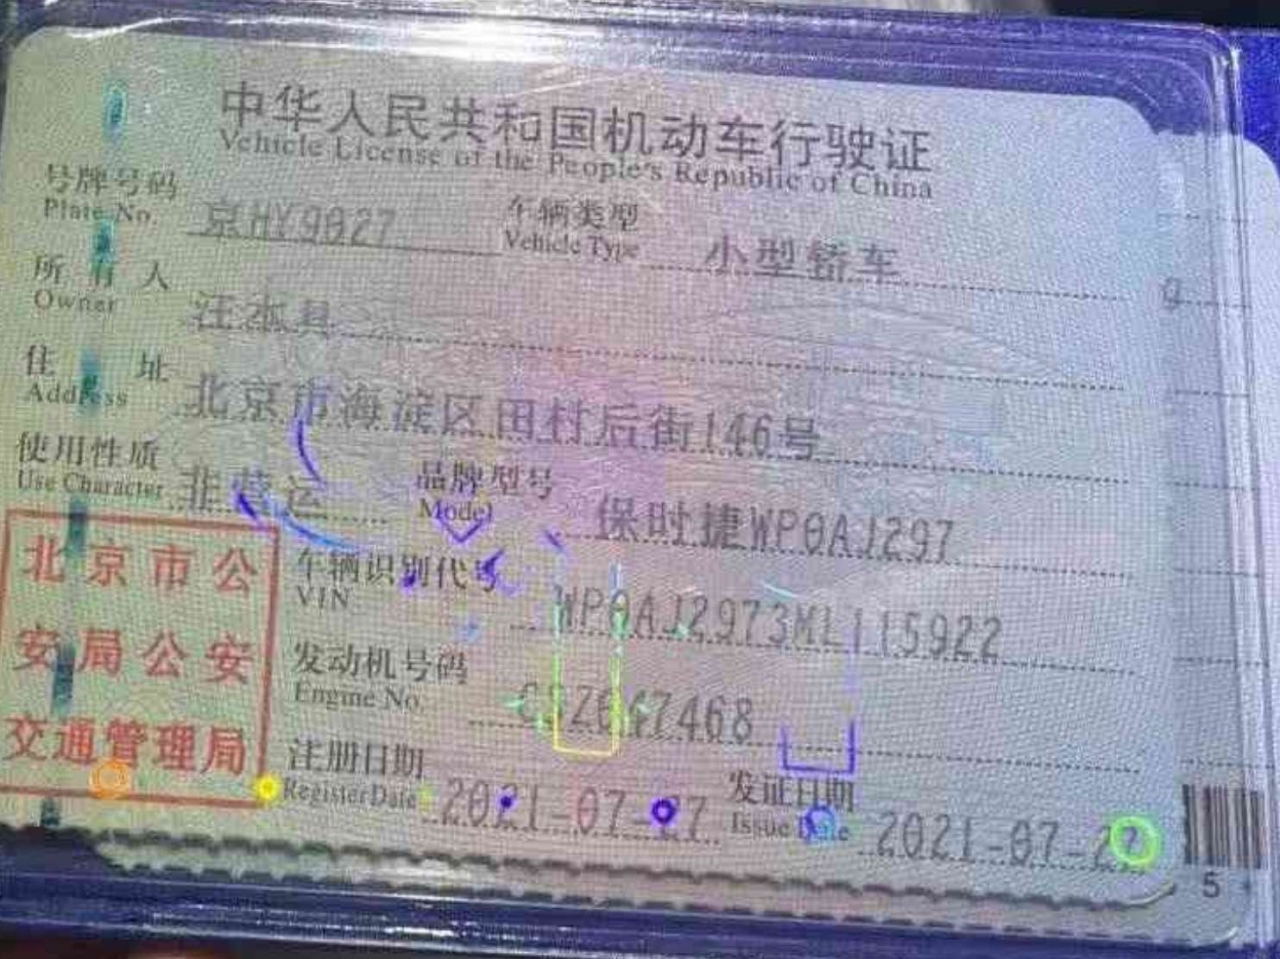 中华人民共和国机动车行驶证
Vehicle License of the People's Republic of China
号牌号码 京HY9827 车辆类型 小型轿车
Plate No. Vehicle Type
所有人 汪本具
Owner
住址 北京市海淀区田村后街146号
Address
使用性质 非营运 品牌型号 保时捷WP0AJ297
Use Character Model
北京市公
安局公安
交通管理局
车辆识别代号 WP0AJ2973ML115922
VIN
发动机号码
Engine No.
注册日期 2021-07-27 发证日期 2021-07-27
Register Date Issue Date
5